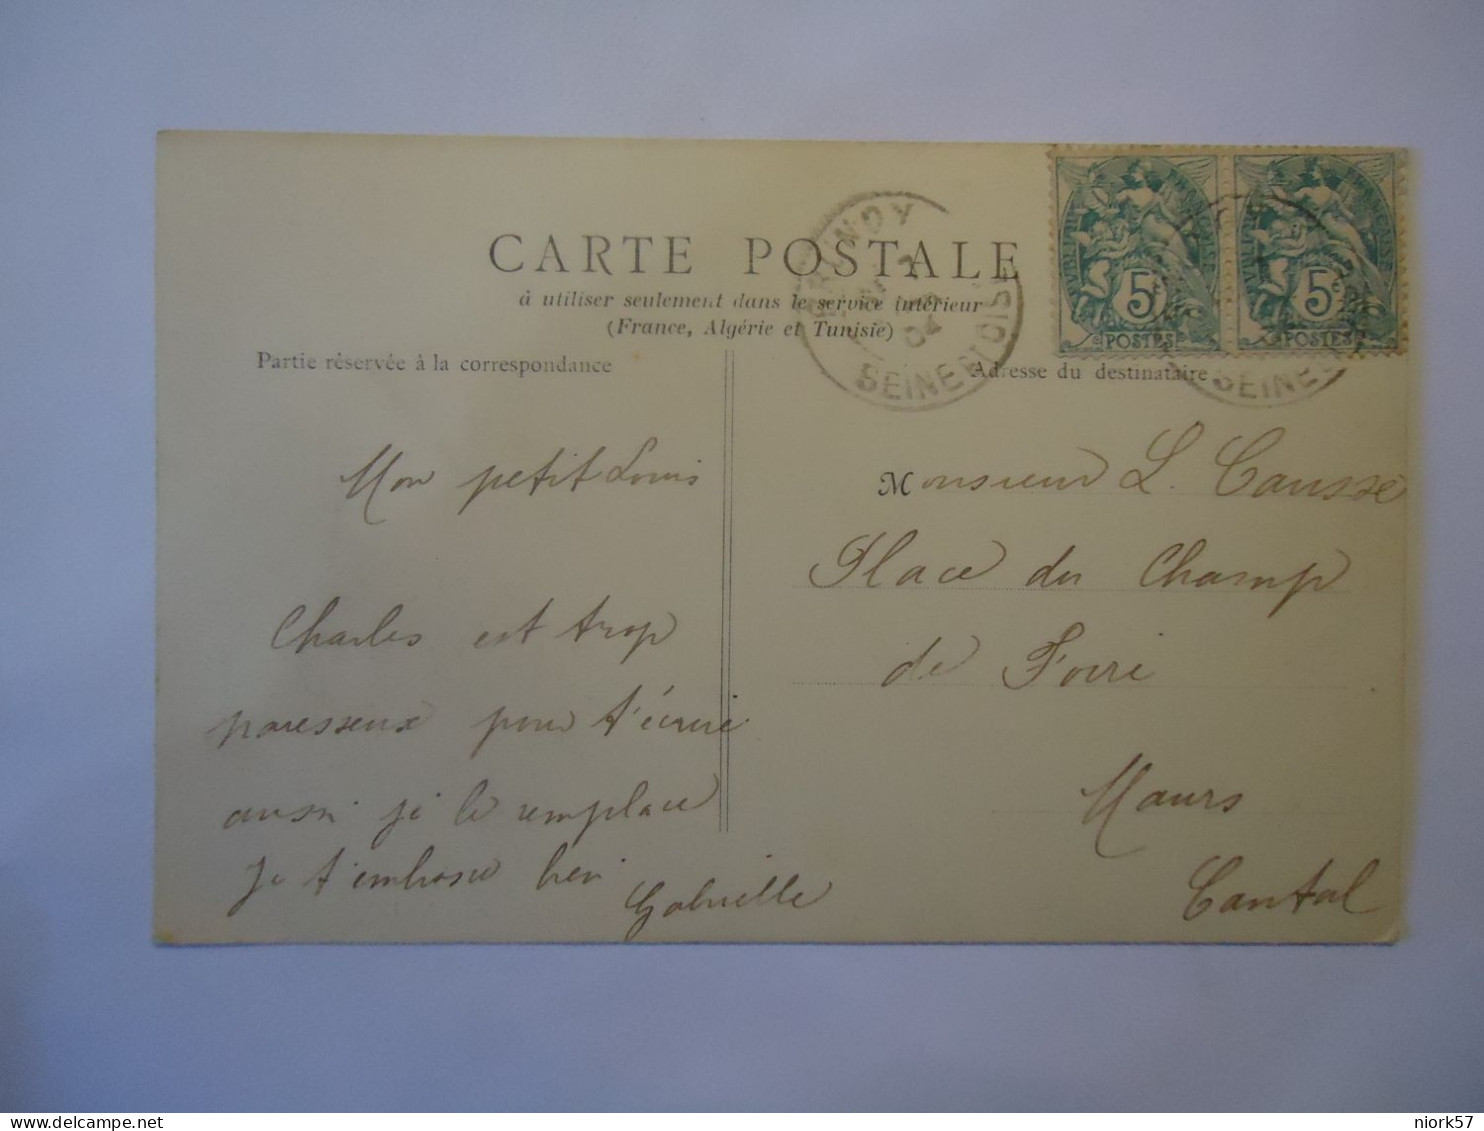 BRUNOY
04
SEINE ET OISE
5c
POSTES
5c
POSTES
CARTE POSTALE
à utiliser seulement dans le service intérieur
(France, Algérie et Tunisie)
Partie réservée à la correspondance
Mon petit Louis
Charles est trop
paresseux pour t'écrire
aussi je le remplace
Je t'embrasse bien
Gabrielle
Adresse du destinataire
Monsieur L. Causse
Place du Champ
de Foire
Maurs
Cantal
niork57